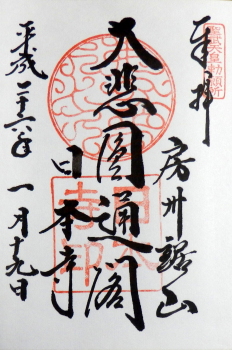 聖武天皇勅願所
奉拝
房州鋸山
大悲圓通閣
日本寺
日本寺印
平成二十六年一月十九日